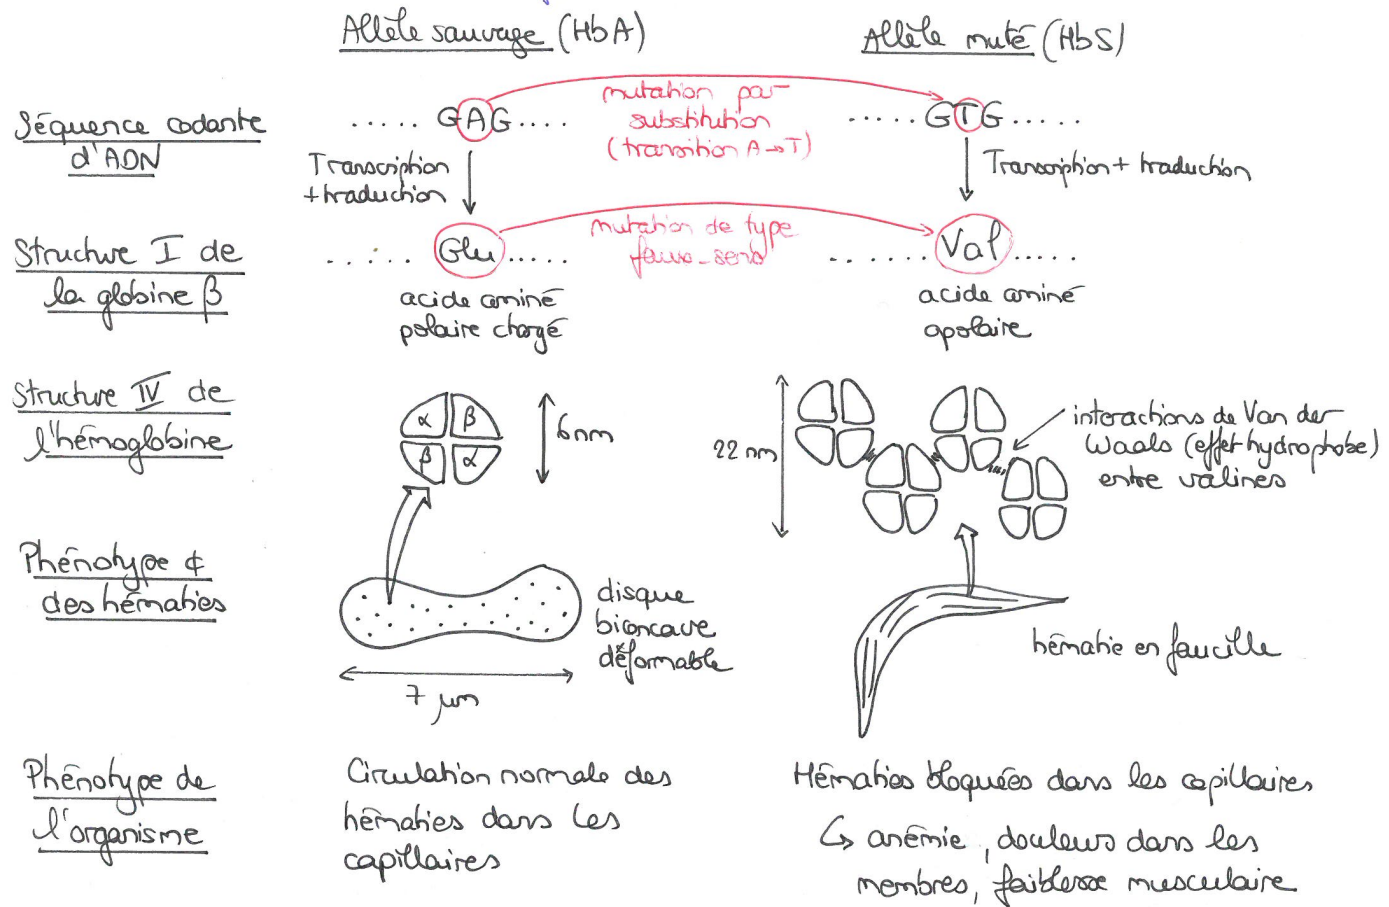 Allèle sauvage (HbA)
Allèle muté (HbS)
Séquence codante
d'ADN
..... GAG....
mutation par
substitution
(transition A→T)
.....GTG.....
Transcription
+traduction
Transcription + traduction
Structure I de
la globine β
Glu.....
mutation de type
faux-sens
.......Val.....
acide aminé
polaire chargé
acide aminé
apolaire
Structure IV de
l'hémoglobine
α β
β α
6nm
22 nm
interactions de Van der
Waals (effet hydrophobe)
entre valines
Phénotype ¢
des hématies
disque
biconcave
déformable
7 µm
hématie en faucille
Phénotype de
l'organisme
Circulation normale des
hématies dans les
capillaires
Hématies bloquées dans les capillaires
↳ anémie, douleurs dans les
membres, faiblesse musculaire